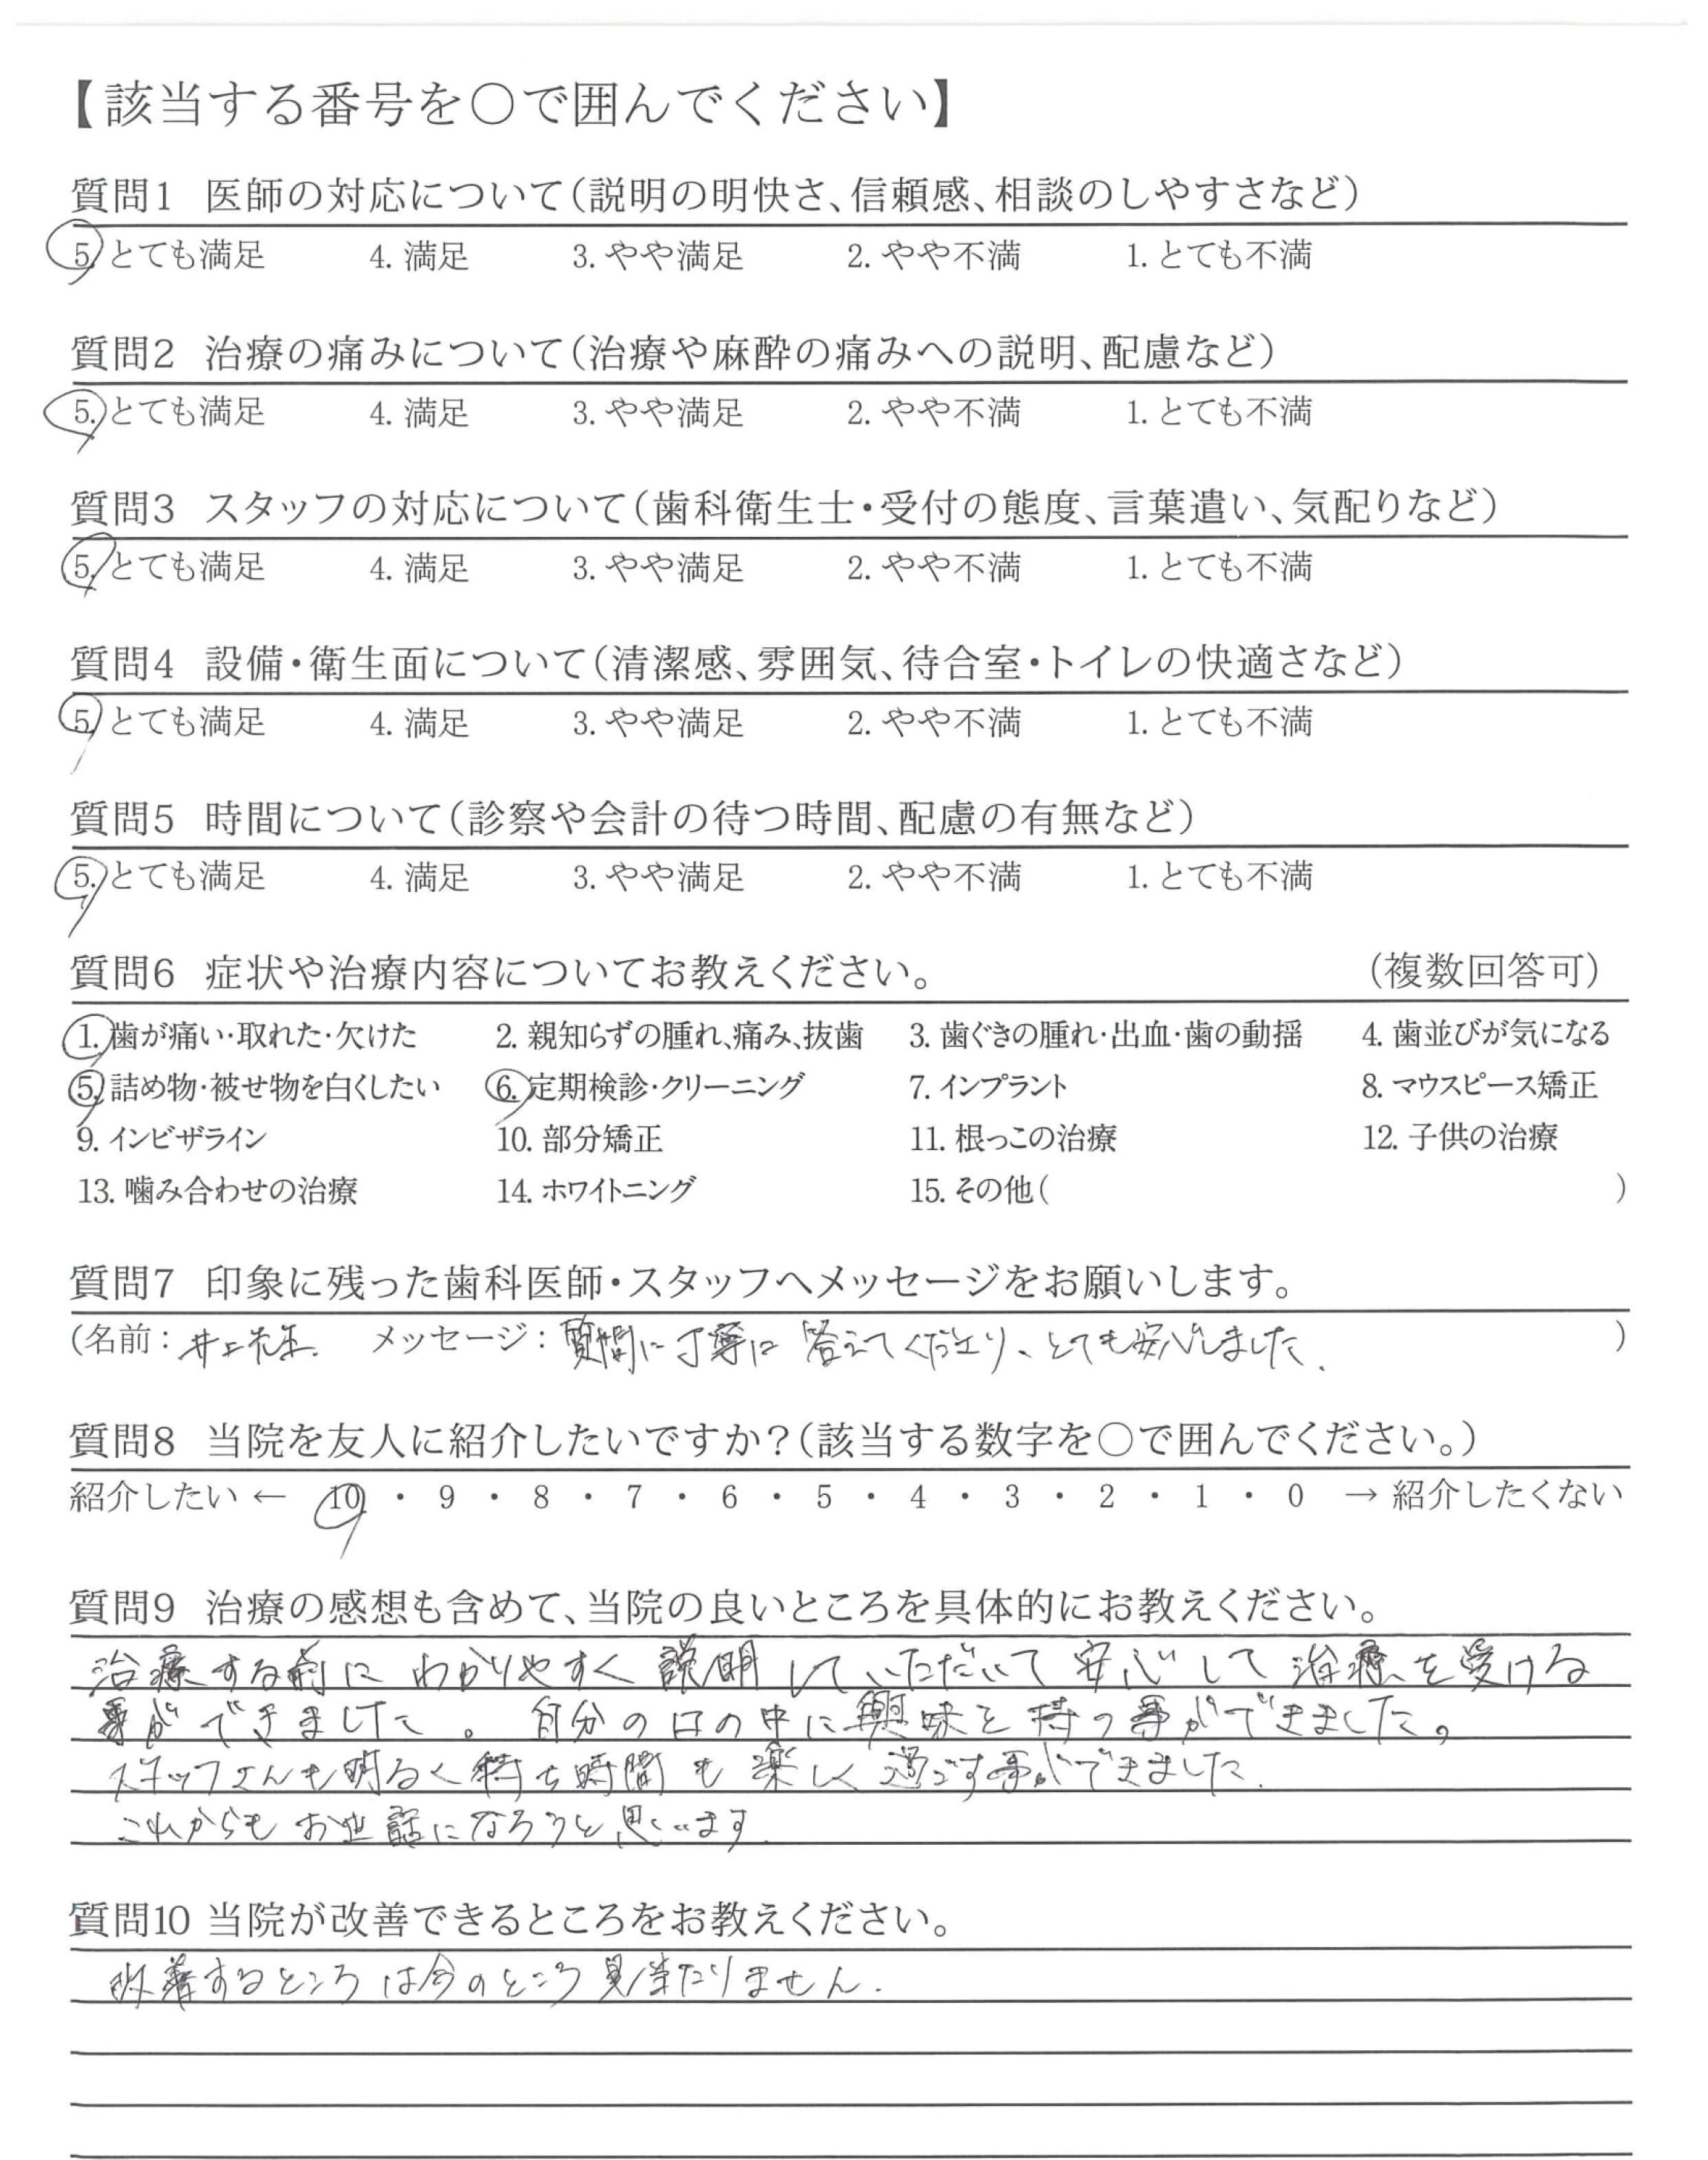 【該当する番号を〇で囲んでください】
質問1 医師の対応について（説明の明快さ、信頼感、相談のしやすさなど）
5. とても満足 4. 満足 3. やや満足 2. やや不満 1. とても不満
質問2 治療の痛みについて（治療や麻酔の痛みへの説明、配慮など）
5. とても満足 4. 満足 3. やや満足 2. やや不満 1. とても不満
質問3 スタッフの対応について（歯科衛生士・受付の態度、言葉遣い、気配りなど）
5. とても満足 4. 満足 3. やや満足 2. やや不満 1. とても不満
質問4 設備・衛生面について（清潔感、雰囲気、待合室・トイレの快適さなど）
5. とても満足 4. 満足 3. やや満足 2. やや不満 1. とても不満
質問5 時間について（診察や会計の待つ時間、配慮の有無など）
5. とても満足 4. 満足 3. やや満足 2. やや不満 1. とても不満
質問6 症状や治療内容についてお教えください。 （複数回答可）
1. 歯が痛い・取れた・欠けた 2. 親知らずの腫れ、痛み、抜歯 3. 歯ぐきの腫れ・出血・歯の動揺 4. 歯並びが気になる
5. 詰め物・被せ物を白くしたい 6. 定期検診・クリーニング 7. インプラント 8. マウスピース矯正
9. インビザライン 10. 部分矯正 11. 根っこの治療 12. 子供の治療
13. 噛み合わせの治療 14. ホワイトニング 15. その他（ ）
質問7 印象に残った歯科医師・スタッフへメッセージをお願いします。
（名前：井上先生. メッセージ：質問に丁寧に答えてくださり、とても安心しました. ）
質問8 当院を友人に紹介したいですか？（該当する数字を〇で囲んでください。）
紹介したい ← 10 ・ 9 ・ 8 ・ 7 ・ 6 ・ 5 ・ 4 ・ 3 ・ 2 ・ 1 ・ 0 → 紹介したくない
質問9 治療の感想も含めて、当院の良いところを具体的にお教えください。
治療する前にわかりやすく説明していただいて安心して治療を受ける
事ができました。自分の口の中に興味を持つ事ができました。
スタッフさんも明るく待ち時間も楽しく過ごす事ができました.
これからもお世話になろうと思います.
質問10 当院が改善できるところをお教えください。
改善するところは今のところ見当たりません.